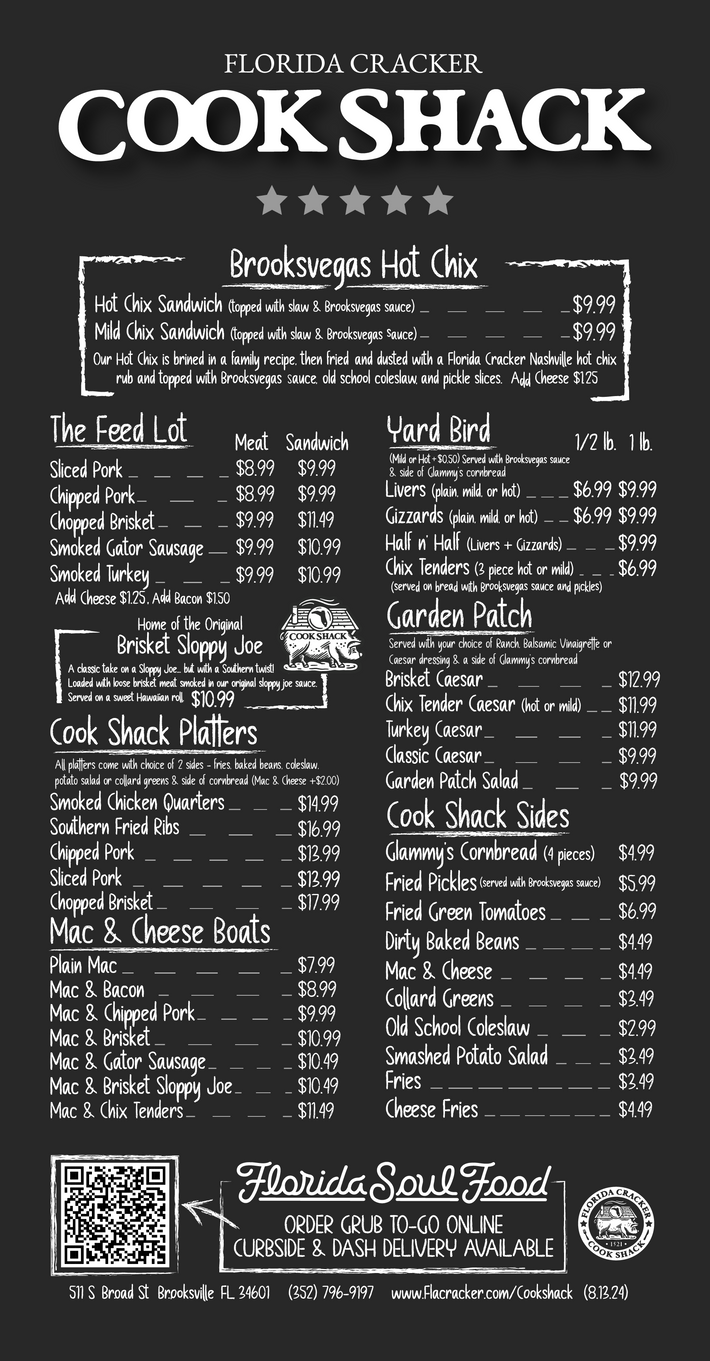 FLORIDA CRACKER
COOK SHACK
Brooksvegas Hot Chix
Hot Chix Sandwich (topped with slaw & Brooksvegas sauce) $9.99
Mild Chix Sandwich (topped with slaw & Brooksvegas sauce) $9.99
Our Hot Chix is brined in a family recipe, then fried and dusted with a Florida Cracker Nashville hot chix
rub and topped with Brooksvegas sauce, old school coleslaw, and pickle slices. Add Cheese $1.25
The Feed Lot Meat Sandwich
Sliced Pork $8.99 $9.99
Chipped Pork $8.99 $9.99
Chopped Brisket $9.99 $11.49
Smoked Gator Sausage $9.99 $10.99
Smoked Turkey $9.99 $10.99
Add Cheese $1.25, Add Bacon $1.50
Home of the Original
Brisket Sloppy Joe
A classic take on a Sloppy Joe... but with a Southern twist!
Loaded with loose brisket meat smoked in our original sloppy joe sauce.
Served on a sweet Hawaiian roll. $10.99
COOK SHACK
Cook Shack Platters
All platters come with choice of 2 sides - fries, baked beans, coleslaw,
potato salad or collard greens & side of cornbread (Mac & Cheese +$2.00)
Smoked Chicken Quarters $14.99
Southern Fried Ribs $16.99
Chipped Pork $13.99
Sliced Pork $13.99
Chopped Brisket $17.99
Mac & Cheese Boats
Plain Mac $7.99
Mac & Bacon $8.99
Mac & Chipped Pork $9.99
Mac & Brisket $10.99
Mac & Gator Sausage $10.49
Mac & Brisket Sloppy Joe $10.49
Mac & Chix Tenders $11.49
Yard Bird 1/2 lb. 1 lb.
(Mild or Hot +$0.50) Served with Brooksvegas sauce
& side of Glammy's cornbread
Livers (plain, mild, or hot) $6.99 $9.99
Gizzards (plain, mild, or hot) $6.99 $9.99
Half n' Half (Livers + Gizzards) $9.99
Chix Tenders (3 piece hot or mild) $6.99
(served on bread with Brooksvegas sauce and pickles)
Garden Patch
Served with your choice of Ranch, Balsamic Vinaigrette or
Caesar dressing & a side of Glammy's cornbread
Brisket Caesar $12.99
Chix Tender Caesar (hot or mild) $11.99
Turkey Caesar $11.99
Classic Caesar $9.99
Garden Patch Salad $9.99
Cook Shack Sides
Glammy's Cornbread (4 pieces) $4.99
Fried Pickles (served with Brooksvegas sauce) $5.99
Fried Green Tomatoes $6.99
Dirty Baked Beans $4.49
Mac & Cheese $4.49
Collard Greens $3.49
Old School Coleslaw $2.99
Smashed Potato Salad $3.49
Fries $3.49
Cheese Fries $4.49
Florida Soul Food
ORDER GRUB TO-GO ONLINE
CURBSIDE & DASH DELIVERY AVAILABLE
FLORIDA CRACKER
• 1921 •
COOK SHACK
511 S Broad St Brooksville FL 34601 (352) 796-9197 www.Flacracker.com/Cookshack (8.13.24)